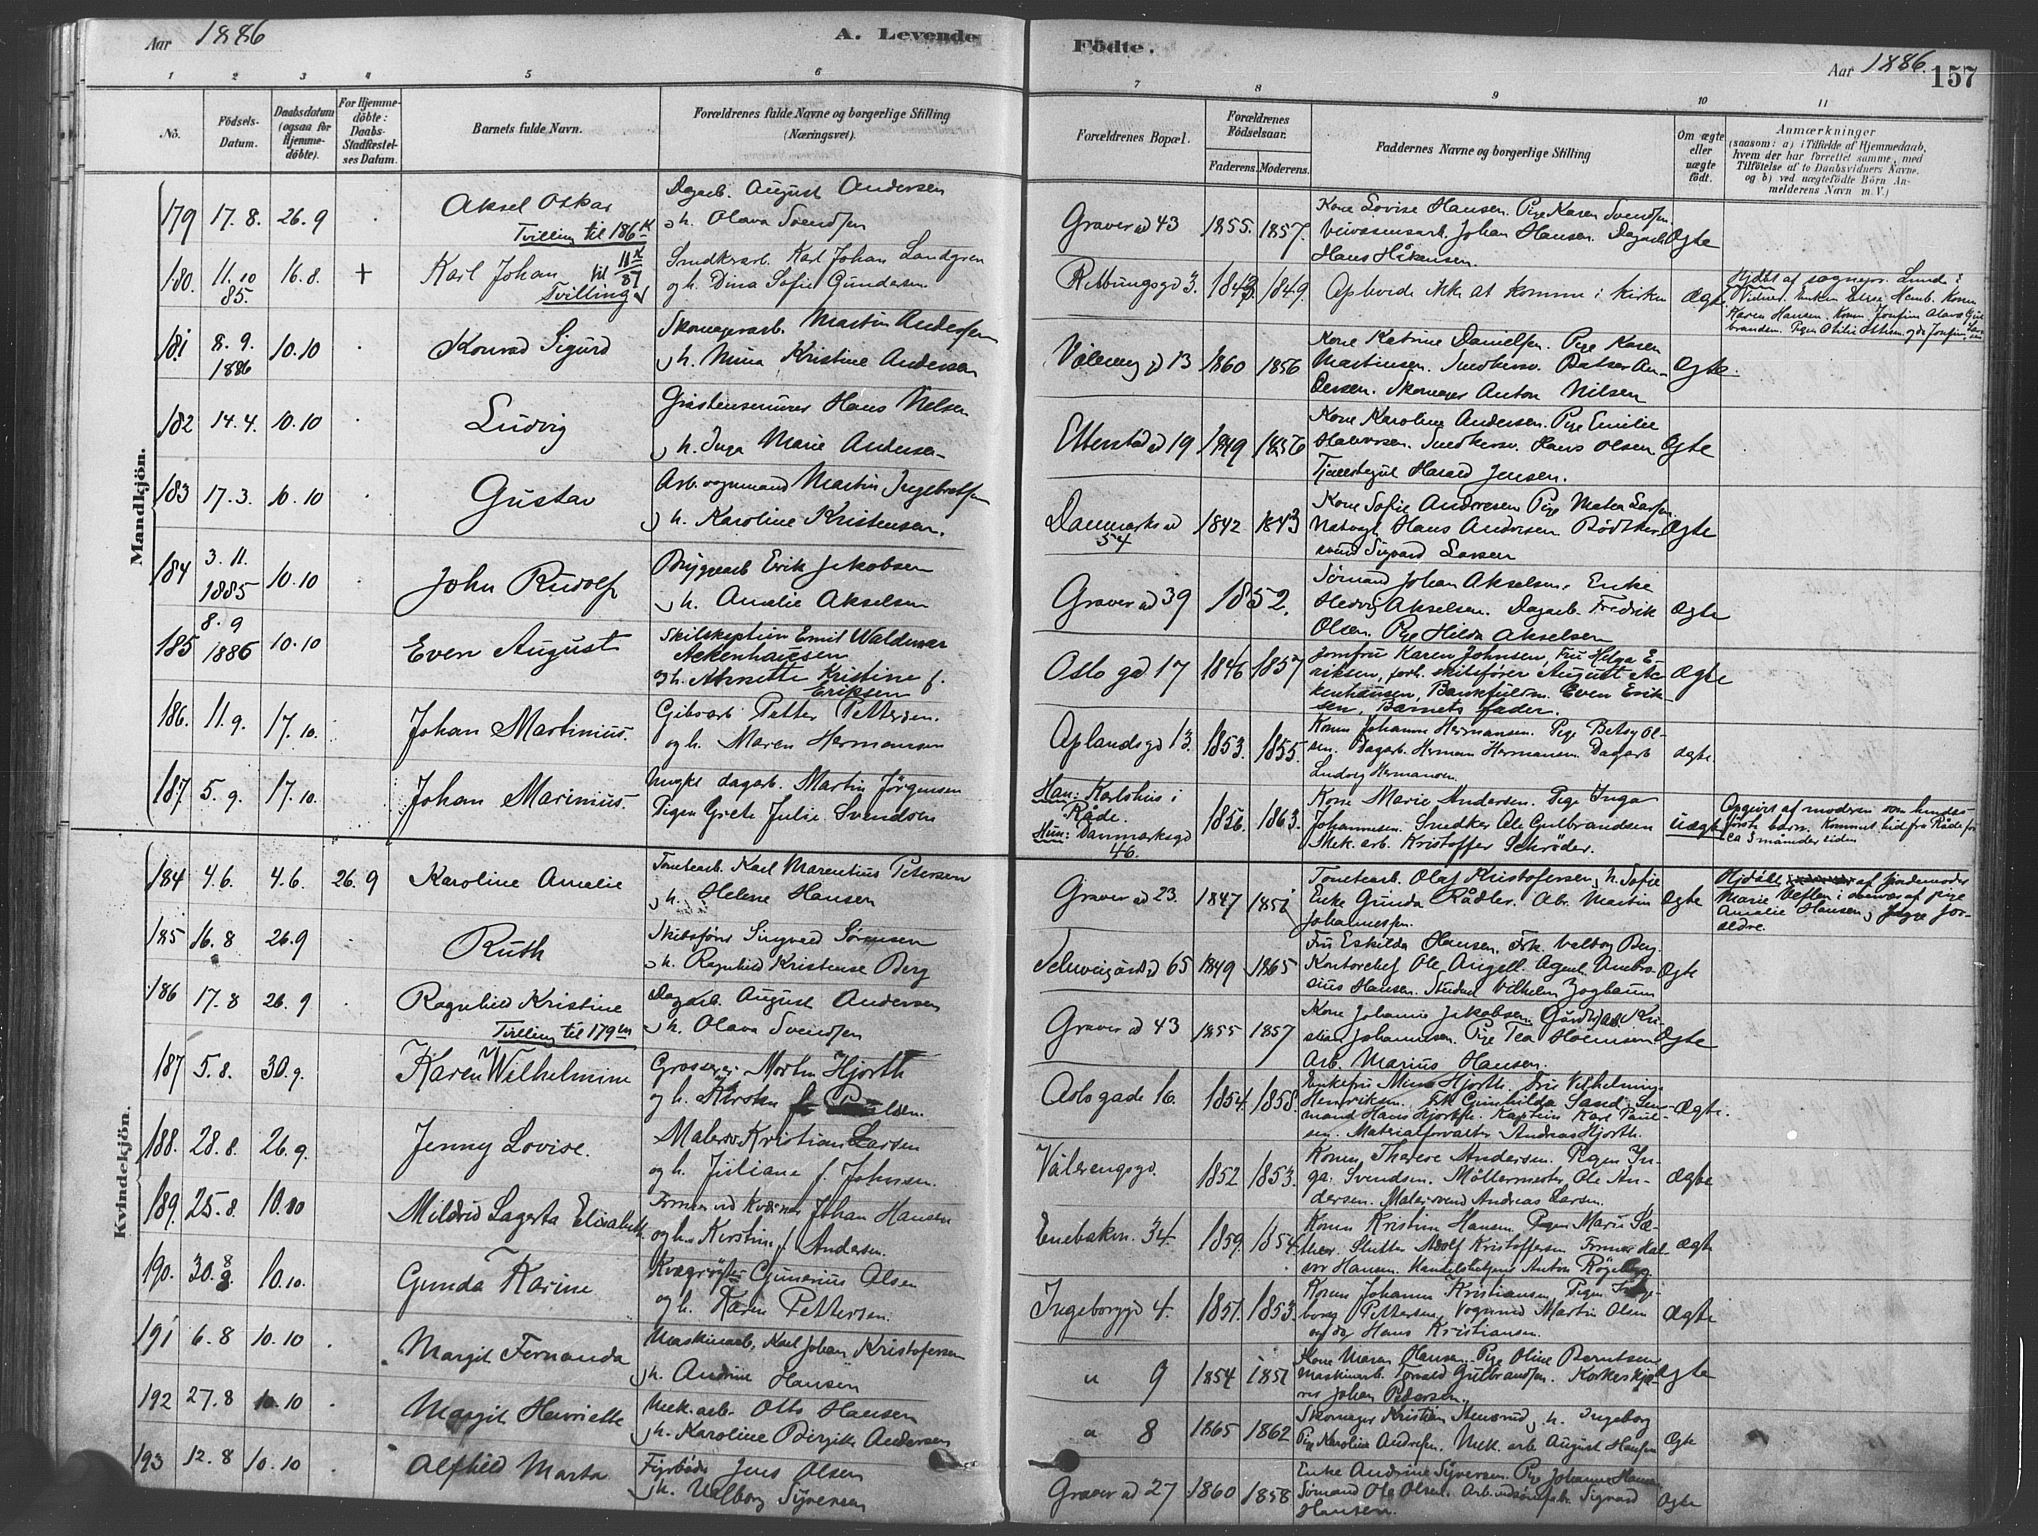 Aar 1886
A. Levende
Födte.
Aar 1886.
157
1 2 3 4 5 6 7 8 9 10 11
No.
Födsels-
Datum.
Daabsdatum
(ogsaa for
Hjemme-
döbte).
For Hjemme-
döbte:
Daabs-
Stadfæstel-
ses Datum.
Barnets fulde Navn.
Forældrenes fulde Navne og borgerlige Stilling
(Næringsvei).
Forældrenes Bopæl.
Forældrenes
Födselsaar.
Faderens. Moderens.
Faddernes Navne og borgerlige Stilling
Om ægte
eller
uægte
födt.
Anmærkninger
(saasom: a) i Tilfælde af Hjemmedaab,
hvem der har forrettet samme, med
Tilföielse af to Daabsvidners Navne,
og b) ved uægtefödte Börn An-
melderens Navn m. V.)
Mandkjön.
179 17.8. 26.9 Aksel Oskar
Tvilling til 186 K
Dagarb. August Andersen
h. Olava Svendsen
Graver gd 43 1855. 1857.
Kone Lovise Hansen. Pige Karen Svendsen
Johan Hansen. Dagarb.
Hans Håkensen.
Ægte
180. 11.10 85. 16.8. + Karl Johan
Tvilling
Snedkerarb. Karl Johan Landgren
og h. Dina Sofie Gundersen
3. 1843. 1849.
at komme i kirken
ægte
181 8.9. 1886 10.10 Konrad Sigurd
Skomagerarb. Martin Andersen
h. Mina Kristine Andersen
Vålereng gd 13 1860 1856
Kone Katrine Danielsen. Pige Karen
Martinsen. Snedkersv. Petter An-
dersen. Skomager Anton Nilsen
Ægte.
182 14.4. 10.10 Ludvig
Hans Nilsen
h. Inga Marie Andersen
Etterstad gd 19 1849 1856
Kone Karoline Andersen. Pige Emilie
Halvorsen. Snedkersv. Hans Olsen
Jensen.
Ægte
183 17.3. 10.10 Gustav
Arb. vognmand Martin Ingebretsen
h. Karoline Kristensen.
Danmarks gd
54
1842 1843
Kone Sofie Andresen Pige Matea Larsen
Hans Andersen Rødtker-
svend Sigvard Larsen
Ægte
184 3.11. 1885 10.10 John Rudolf
Bryggearb Erik Jakobsen
h. Amalie Akselsen
Graver gd 39 1852.
Sømand Johan Akselsen. Enke
Hedvig Akselsen. Dagarb. Fredrik
Olsen. Pige Hilda Akselsen
Ægte
185 8.9 1886 10.10 Even August
Skibskaptein Emil Waldemar
Ackenhausen
og h. Annette Kristine f.
Eriksen
Oslo gd 17 1846 1857
Jomfru Karen Johnsen, Fru Helga E-
riksen, forh. skibsfører August Ac-
kenhausen, Bankfuldm. Even Erik-
sen, Barnets fader.
Ægte
186. 11.9. 17.10. Johan Martinius.
Gibsarb Petter Pettersen.
og h. Maren Hermansen
Oplandsgd 13. 1853. 1855.
Konen Johanne Hermansen. Pige Betsy Ol-
sen. Dagarb. Herman Hermansen Dagarb
Ludvig Hermansen.
ægte
187. 5.9. 17.10. Johan Marinius.
Ungkl dagarb. Martin Jörgensen
Pigen Grete Julie Svendsen
Han: Karlshus i
Råde.
Hun: Danmarksgd
46.
1856. 1863.
Kone Marie Andersen. Pige Inga
Johannesen. Snedker Ole Gulbrandsen
Mek. arb. Kristoffer Schrøder.
uægte
Opgivet af moderen som hendes
første barn. Kommet hid fra Råde for
ca 3 måneder siden
Kvindekjön.
184 4.6. 4.6. 26.9 Karoline Amalie
Karl Marentius Petersen
h. Helene Hansen
Graver gd 23. 1847 1851
Olaf Kristofersen, h. Sofie
Enke Gunda Rådler. Arb. Martin
Johannessen.
Ægte
af jordemoder
Marie
Amalie Hansen,
185 16.8 26.9 Ruth
Skibsförer Sigvard Sørensen
h. Ragnhild Kristense Berg
Schweigårdsgd 65 1849 1865
Fru Eskilda Hansen. Frk. Valborg Berg.
Kontorchef Ole Angell. Agent Ambro-
sius Hansen. Student Vilhelm Zogbaum
Ægte
186 17.8 26.9 Ragnhild Kristine
Tvilling til 179 m
Dagarb. August Andersen
h. Olava Svendsen
Graver gd 43 1855 1857
Kone Johanne Jakobsen.
Johannesen. Pige Tea
Arb. Marius Hansen.
Ægte
187 5.8. 30.9. Karen Wilhelmine
Grosserer Morten Hjorth
og h. Kirsten f. Paulsen.
Oslogade 16. 1854. 1858.
Enkefru Mina Hjorth. Fru Vilhelmine
Henriksen. Frk Gunhilda Sand.
Hans Hjorth. Kaptein Karl Paul-
sen. Materialforvalter Andreas Hjorth.
Ægte.
188. 28.8. 26.9. Jenny Lovise.
Malersv Kristian Larsen
og h. Juliane f. Johnsen.
Vålerengsgd. 1852 1853.
Konen Therese Andersen. Pigen In-
ga Svendsen. Möllermester Ole An-
dersen. Malersvend Andreas Larsen.
Ægte
189. 25.8. 10.10 Mildrid Lagerta Elisabeth
Former ved Johan Hansen
og h. Kirstine f. Andersen.
Enebakv. 34. 1859. 1854.
Konen Kristine Hansen Pigen Marie Sæ-
ther. Slutter Adolf Kristoffersen Former Hal-
vor Hansen. Handelsbetjent Anton
Ægte
190. 30.8 10.10. Gunda Karine
Kvægrögter Gunerius Olsen
og h. Karen Pettersen.
Ingeborggd 4. 1851. 1853.
Konen Johanne Kristiansen. Pigen Inge-
borg Pettersen, Vognmd Martin Olsen
Hans Kristiansen.
Ægte
191 6.8 10.10 Margit Fernanda
Maskinarb, Karl Johan Kristofersen
h. Andrine Hansen
" 9 1854 1851
Kone Maren Hansen. Pige Oline Berntsen
Maskinarb. Torvald Gulbrandsen.
Johan Pedersen.
Ægte
192 27.8 10.10 Margit Henriette
Mek. arb. Otto Hansen
h. Karoline Birgitte Andersen
" 8 1865 1862
Skomager Kristian Stensrud, h. Ingeborg
Pige Karoline Andresen. Mek. arb August Hansen
Ægte
193 12.8 10.10 Alfhild Marta
Fyrbøder Jens Olsen
h. Valborg Syversen
Graver gd 27 1860 1858
Enke Andrine Syversen. Pige Johanne Hansen
Sømand Ole Olsen. Sigvard
Hansen.
Ægte